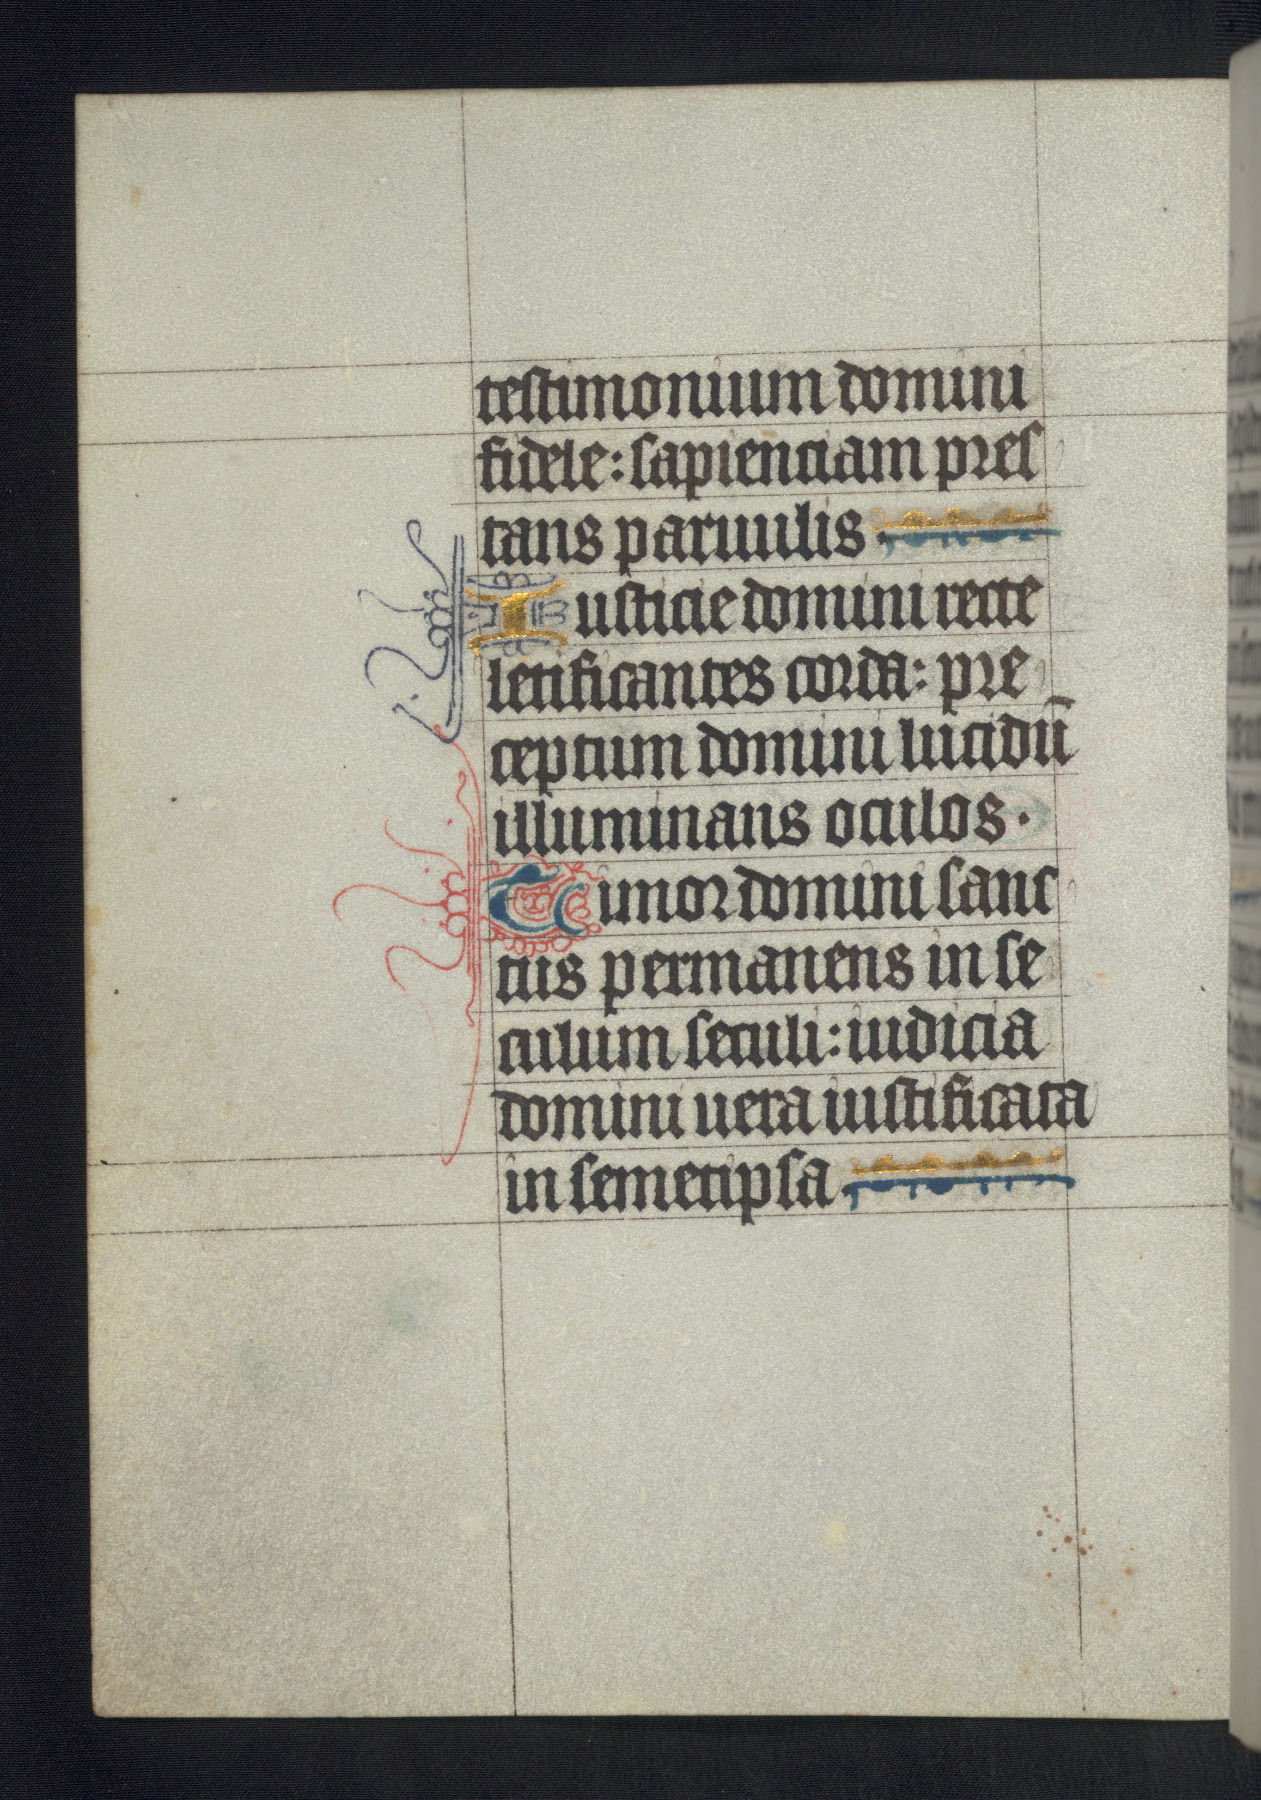 testimonium domini
fidele: sapienciam pres
tans paruulis.
Iusticie domini recte
letificantes corda: pre
ceptum domini lucidū
illuminans oculos.
Timor domini sanc
tus permanens in se
culum seculi: iudicia
domini uera iustificata
in semetipsa.